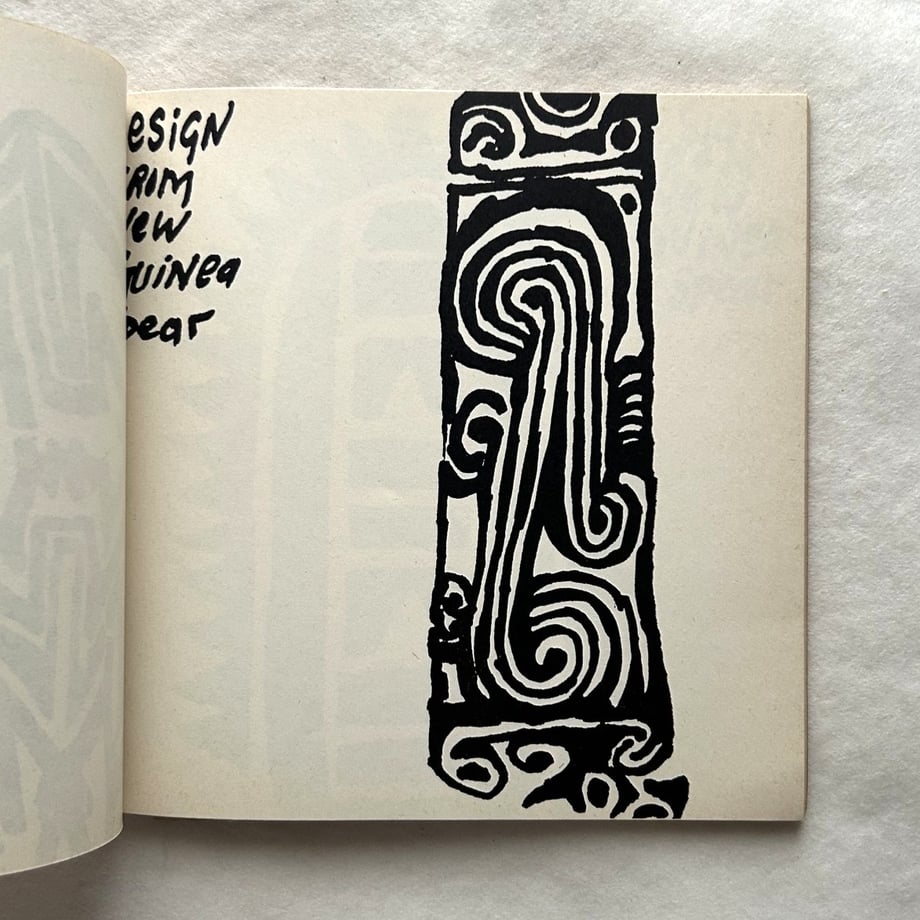 ESiGN
ROM
EW
UiNEa
pear